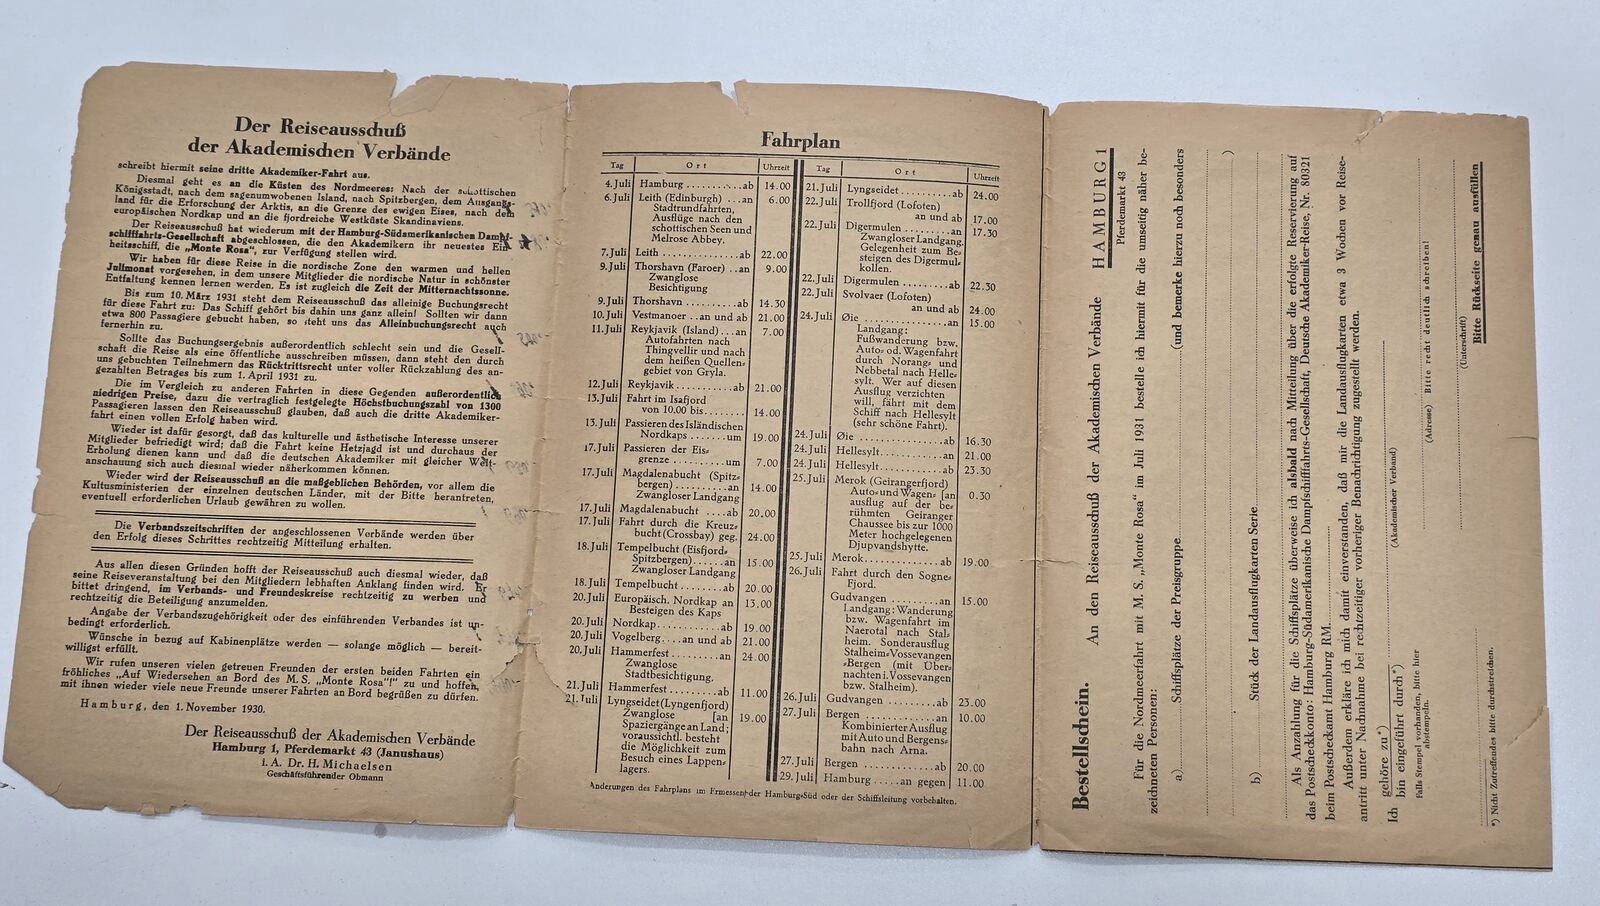 Der Reiseausschuß
der Akademischen Verbände
schreibt hiermit seine dritte Akademiker-Fahrt aus.
Diesmal geht es an die Küsten des Nordmeeres: Nach der schottischen
Königsstadt, nach dem sagenumwobenen Island, nach Spitzbergen, dem Ausgangs-
land für die Erforschung der Arktis, an die Grenze des ewigen Eises, nach dem
europäischen Nordkap und an die fjordreiche Westküste Skandinaviens.
Der Reiseausschuß hat wiederum mit der Hamburg-Südamerikanischen Dampf-
schifffahrts-Gesellschaft abgeschlossen, die den Akademikern ihr neuestes Ein-
heitsschiff, die „Monte Rosa", zur Verfügung stellen wird.
Wir haben für diese Reise in die nordische Zone den warmen und hellen
Julimonat vorgesehen, in dem unsere Mitglieder die nordische Natur in schönster
Entfaltung kennen lernen werden. Es ist zugleich die Zeit der Mitternachtssonne.
Bis zum 10. März 1931 steht dem Reiseausschuß das alleinige Buchungsrecht
für diese Fahrt zu: Das Schiff gehört bis dahin uns ganz allein! Sollten wir dann
etwa 800 Passagiere gebucht haben, so steht uns das Alleinbuchungsrecht auch
fernerhin zu.
Sollte das Buchungsergebnis außerordentlich schlecht sein und die Gesell-
schaft die Reise als eine öffentliche ausschreiben müssen, dann steht den durch
uns gebuchten Teilnehmern das Rücktrittsrecht unter voller Rückzahlung des an-
gezahlten Betrages bis zum 1. April 1931 zu.
Die im Vergleich zu anderen Fahrten in diese Gegenden außerordentlich
niedrigen Preise, dazu die vertraglich festgelegte Höchstbuchungszahl von 1300
Passagieren lassen den Reiseausschuß glauben, daß auch die dritte Akademiker-
fahrt einen vollen Erfolg haben wird.
Wieder ist dafür gesorgt, daß das kulturelle und ästhetische Interesse unserer
Mitglieder befriedigt wird; daß die Fahrt keine Hetzjagd ist und durchaus der
Erholung dienen kann und daß die deutschen Akademiker mit gleicher Welt-
anschauung sich auch diesmal wieder näherkommen können.
Wieder wird der Reiseausschuß an die maßgeblichen Behörden, vor allem die
Kultusministerien der einzelnen deutschen Länder, mit der Bitte herantreten,
eventuell erforderlichen Urlaub gewähren zu wollen.
Die Verbandszeitschriften der angeschlossenen Verbände werden über
den Erfolg dieses Schrittes rechtzeitig Mitteilung erhalten.
Aus allen diesen Gründen hofft der Reiseausschuß auch diesmal wieder, daß
seine Reiseveranstaltung bei den Mitgliedern lebhaften Anklang finden wird. Er
bittet dringend, im Verbands- und Freundeskreise rechtzeitig zu werben und
rechtzeitig die Beteiligung anzumelden.
Angabe der Verbandszugehörigkeit oder des einführenden Verbandes ist un-
bedingt erforderlich.
Wünsche in bezug auf Kabinenplätze werden — solange möglich — bereit-
willigst erfüllt.
Wir rufen unseren vielen getreuen Freunden der ersten beiden Fahrten ein
fröhliches „Auf Wiedersehen an Bord des M. S. „Monte Rosa"! zu und hoffen,
mit ihnen wieder viele neue Freunde unserer Fahrten an Bord begrüßen zu dürfen.
Hamburg, den 1. November 1930.
Der Reiseausschuß der Akademischen Verbände
Hamburg 1, Pferdemarkt 43 (Janushaus)
i. A. Dr. H. Michaelsen
Geschäftsführender Obmann
Fahrplan
Tag Ort Uhrzeit
4. Juli Hamburg ........... ab 14.00
6. Juli Leith (Edinburgh) .. an 6.00
Stadtrundfahrten,
Ausflüge nach den
schottischen Seen und
Melrose Abbey.
7. Juli Leith ............. ab 22.00
9. Juli Thorshavn (Faroer) .. an 9.00
Zwanglose
Besichtigung
9. Juli Thorshavn ........ ab 14.30
10. Juli Vestmanoer .. an und ab 21.00
11. Juli Reykjavik (Island) ... an 7.00
Autofahrten nach
Thingvellir und nach
dem heißen Quellen-
gebiet von Gryla.
12. Juli Reykjavik ......... ab 21.00
13. Juli Fahrt im Isafjord
von 10.00 bis ....... 14.00
13. Juli Passieren des Isländischen
Nordkaps ...... um 19.00
17. Juli Passieren der Eis-
grenze ........ um 7.00
17. Juli Magdalenabucht (Spitz-
bergen) ........ an 14.00
Zwangloser Landgang
17. Juli Magdalenabucht .... ab 20.00
17. Juli Fahrt durch die Kreuz-
bucht (Crossbay) geg. 24.00
18. Juli Tempelbucht (Eisfjord,
Spitzbergen) ...... an 15.00
Zwangloser Landgang
18. Juli Tempelbucht ....... ab 20.00
20. Juli Europäisch. Nordkap an 13.00
Besteigen des Kaps
20. Juli Nordkap .......... ab 19.00
20. Juli Vogelberg .... an und ab 21.00
20. Juli Hammerfest ........ an 24.00
Zwanglose
Stadtbesichtigung.
21. Juli Hammerfest ........ ab 11.00
21. Juli Lyngseidet (Lyngenfjord)
Zwanglose [an 19.00
Spaziergänge an Land;
voraussichtl. besteht
die Möglichkeit zum
Besuch eines Lappen-
lagers.
Tag Ort Uhrzeit
21. Juli Lyngseidet ......... ab 24.00
22. Juli Trollfjord (Lofoten)
an und ab 17.00
22. Juli Digermulen ........ an 17.30
Zwangloser Landgang.
Gelegenheit zum Be-
steigen des Digermul-
kollen.
22. Juli Digermulen ........ ab 22.30
22. Juli Svolvaer (Lofoten)
an und ab 24.00
24. Juli Øie ............... an 15.00
Landgang:
Fußwanderung bzw.
Auto- od. Wagenfahrt
durch Norang- und
Nebbetal nach Helle-
sylt. Wer auf diesen
Ausflug verzichten
will, fährt mit dem
Schiff nach Hellesylt
(sehr schöne Fahrt).
24. Juli Øie ............... ab 16.30
24. Juli Hellesylt .......... an 21.00
24. Juli Hellesylt .......... ab 23.30
25. Juli Merok (Geirangerfjord)
Auto- und Wagen- [an 0.30
ausflug auf der be-
rühmten Geiranger
Chaussee bis zur 1000
Meter hochgelegenen
Djupvandshytte.
25. Juli Merok ............. ab 19.00
26. Juli Fahrt durch den Sogne-
Fjord.
Gudvangen ........ an 15.00
Landgang: Wanderung
bzw. Wagenfahrt im
Naerotal nach Stal-
heim. Sonderausflug
Stalheim-Vossevangen
-Bergen (mit Über-
nachten i. Vossevangen
bzw. Stalheim).
26. Juli Gudvangen ........ ab 23.00
27. Juli Bergen ............ an 10.00
Kombinierter Ausflug
mit Auto und Bergens-
bahn nach Arna.
27. Juli Bergen ............ ab 20.00
29. Juli Hamburg ..... an gegen 11.00
Änderungen des Fahrplans im Ermessen der Hamburg-Süd oder der Schiffsleitung vorbehalten.
Bestellschein. An den Reiseausschuß der Akademischen Verbände HAMBURG 1
Pferdemarkt 43
Für die Nordmeerfahrt mit M. S. „Monte Rosa" im Juli 1931 bestelle ich hiermit für die umseitig näher be-
zeichneten Personen:
a) Schiffsplätze der Preisgruppe (und bemerke hierzu noch besonders
)
b) Stück der Landausflugkarten Serie
Als Anzahlung für die Schiffsplätze überweise ich alsbald nach Mitteilung über die erfolgte Reservierung auf
das Postscheckkonto: Hamburg-Südamerikanische Dampfschifffahrts-Gesellschaft, Deutsche Akademiker-Reise, Nr. 80321
beim Postscheckamt Hamburg RM.
Außerdem erkläre ich mich damit einverstanden, daß mir die Landausflugkarten etwa 3 Wochen vor Reise-
antritt unter Nachnahme bei rechtzeitiger vorheriger Benachrichtigung zugestellt werden.
Ich gehöre zu*)
bin eingeführt durch*)
(Akademischer Verband)
Falls Stempel vorhanden, bitte hier
abstempeln.
(Adresse) Bitte recht deutlich schreiben!
(Unterschrift)
Bitte Rückseite genau ausfüllen
*) Nicht Zutreffendes bitte durchstreichen.